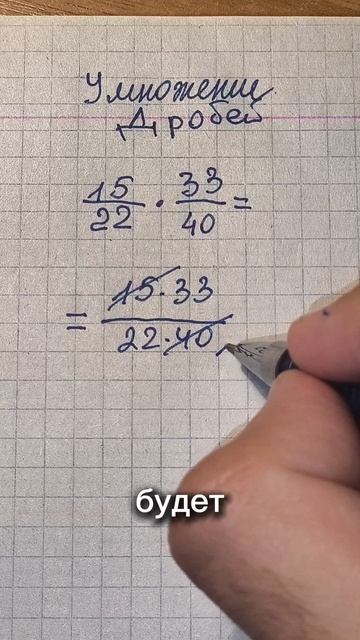 Умножение
Дробей
15/22 · 33/40 =
= 15·33/22·40
будет